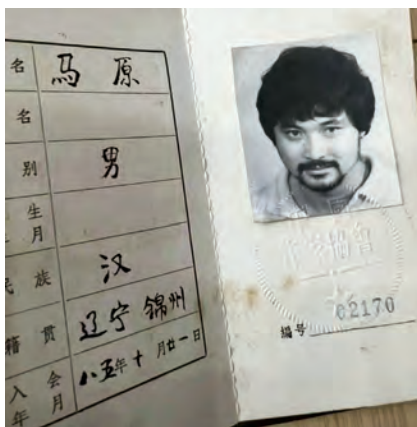 名 馬原
名
别 男
生
月
民族 汉
籍贯 辽宁 锦州
入会
年月 八五年十月廿一日
编号 02170